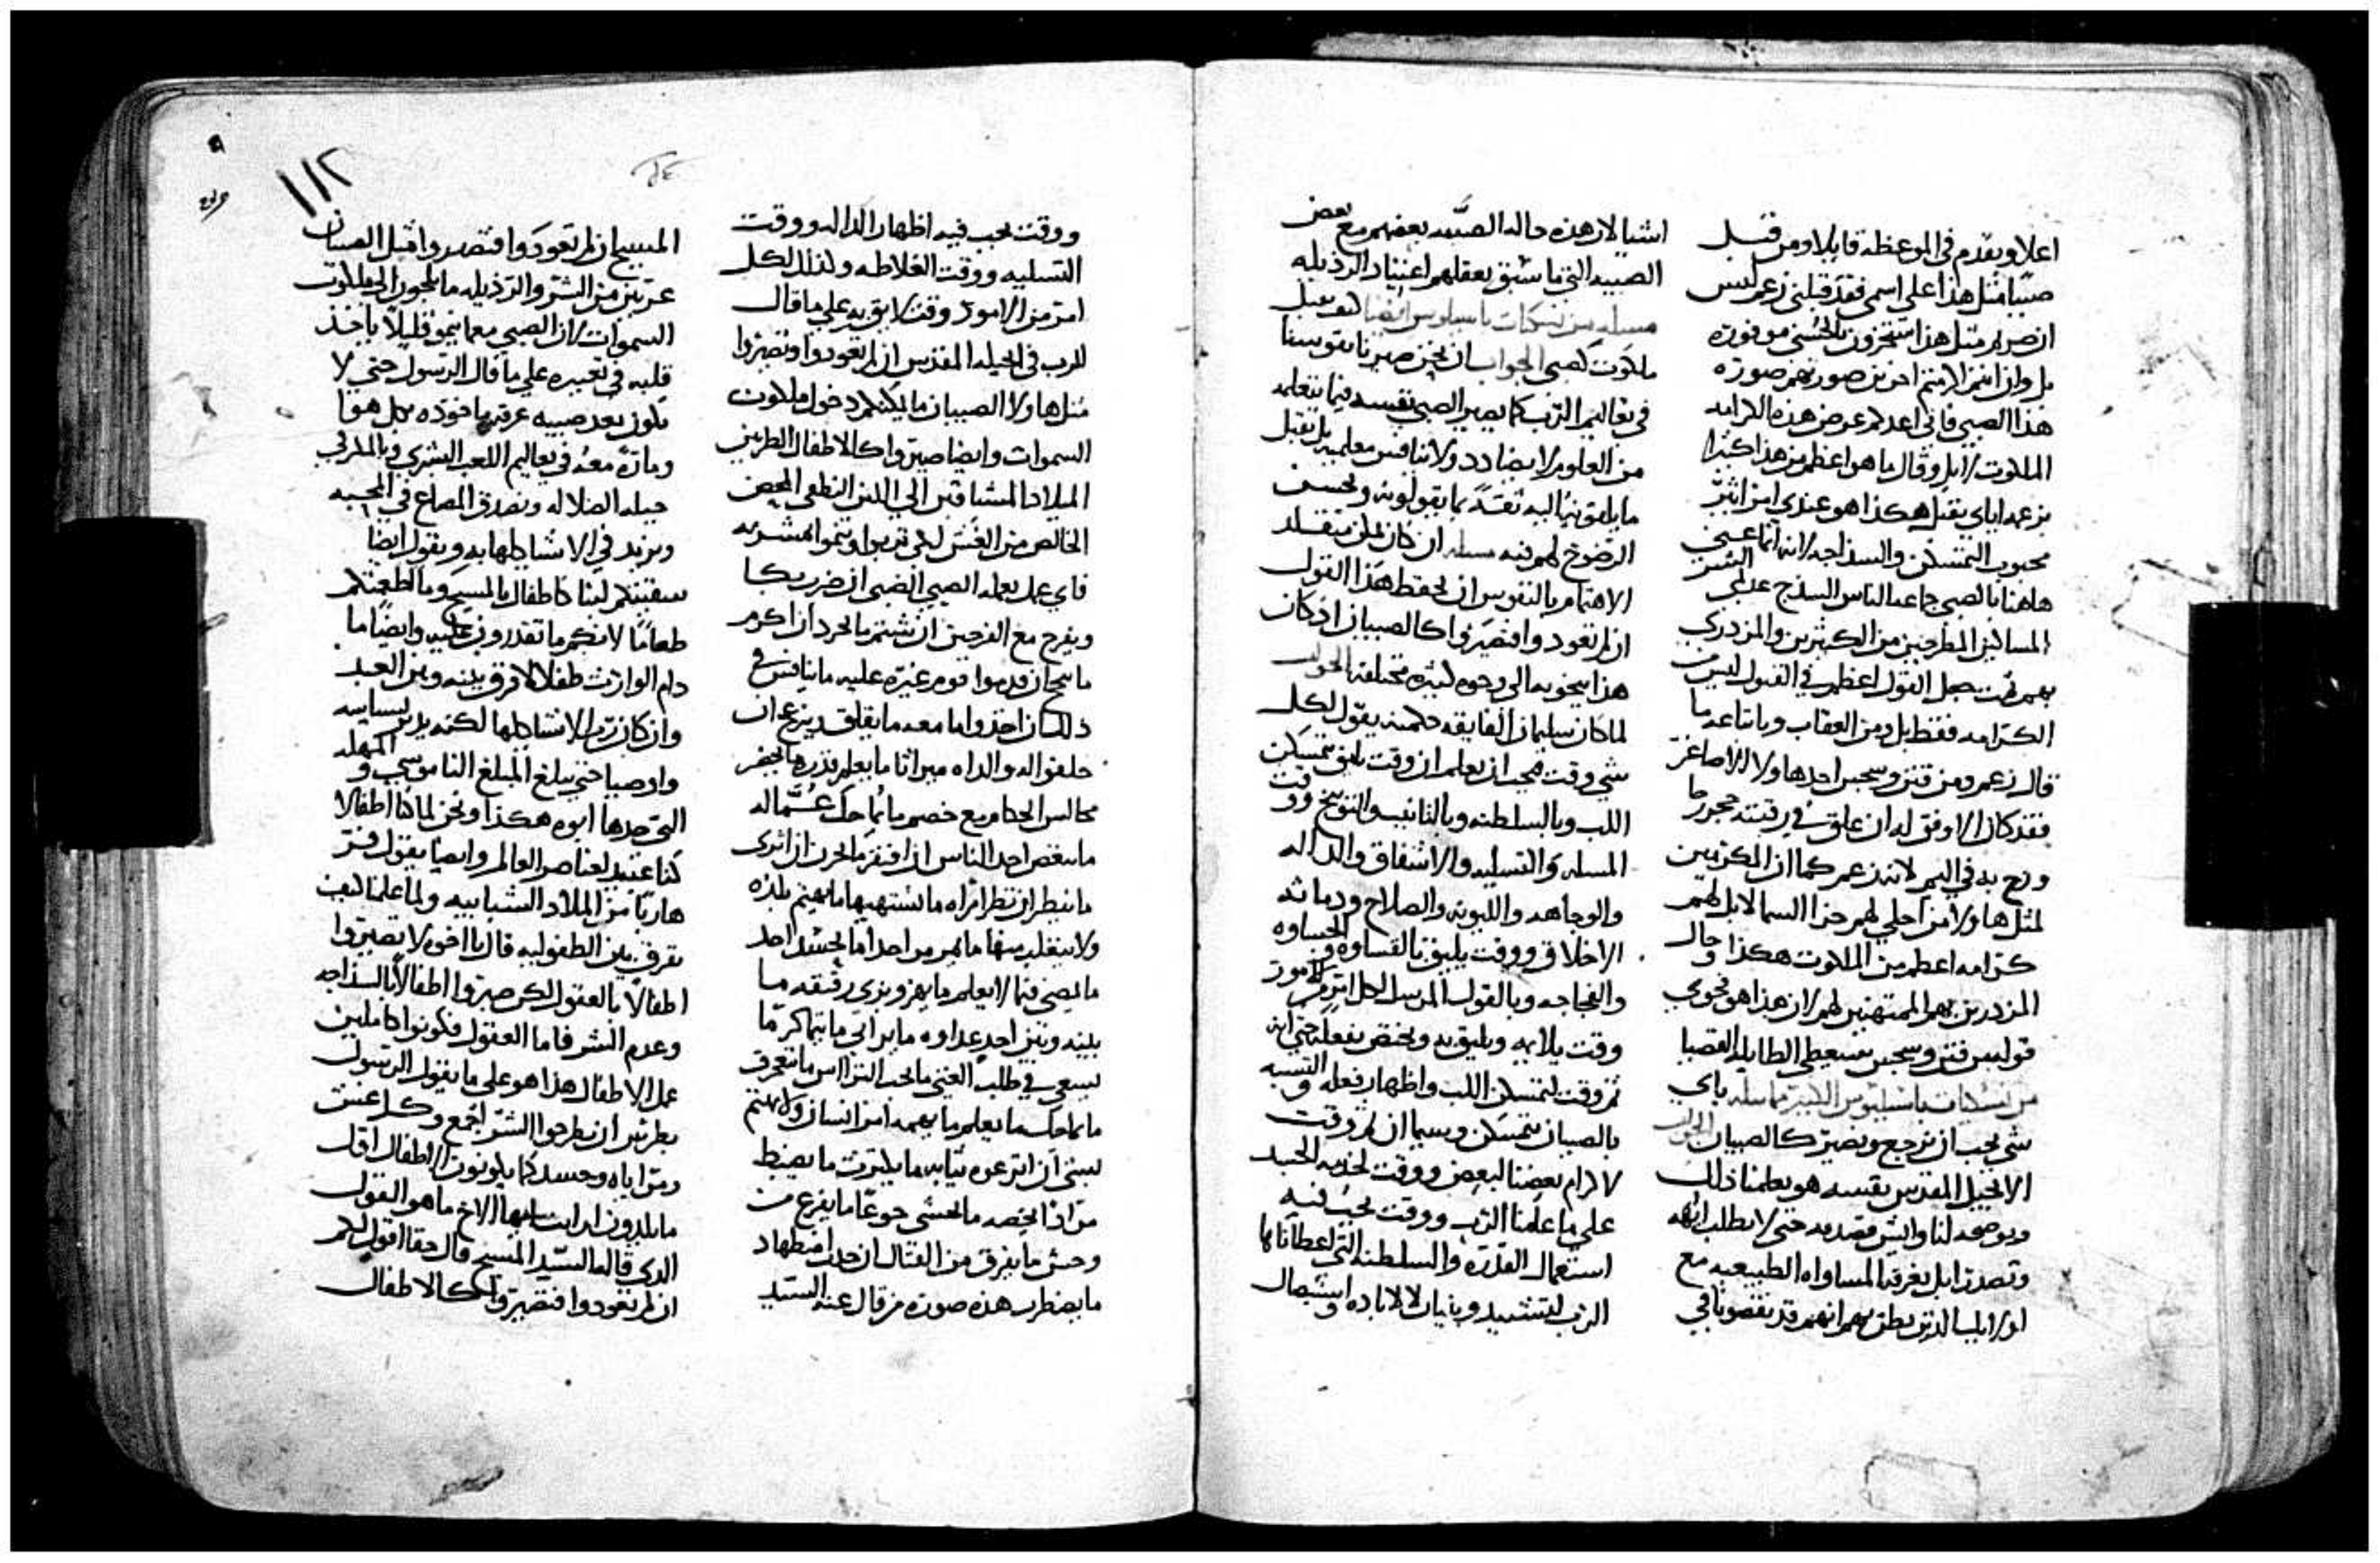 اعلا ويقدم في الموعظه قايلا ومن قبل
صبيا مثل هذا على اسمي فقد قبلني زعم ليس
ان صرتم مثل هذا ستحرون بالحسنى موفوره
بل وان انتم لاجلي اخرين صورتهم صورة
هذا الصبي فاني اعد لكم عوض هذه الكرامه
الملكوت لا بل وقال ما هو اعظم من هذا كثيرا
بزعمه اياي يقبل هكذا هو عندي امر اثير
محبوب التمسكن والسذاجه لانه انما عنى
هاهنا بالصبي جماعه الناس السذج عديمي الشر
المساكين المطرحين من الكثيرين والمزدري
بهم ثمت يجعل القول اعظم في القبول ليس من
الكرامه فقط بل ومن العقاب وباتباعه ما
قال زعم ومن فتن وسجس احد هاولا الاصاغر
فقد كان الاوفق له ان علق في رقبته حجر رحا
وزج به في اليم لانه زعم كما ان المكرمين
لمثل هاولا من اجلي لهم جزا السما لا بل لهم
كرامه اعظم من الملكوت هكذا وحال
المزدرين بهم الممتهنين لهم لان هذا هو فحوى
قوله من فتن وسجس سيعطي الطايله القصيا
من نسكيات باسيليوس الكبير مساله باي
شي يجب ان نرجع ونصير كالصبيان الجواب
الانجيل المقدس نفسه هو يعلمنا ذلك
ويوضحه لنا وايش قصد به حتى لا نطلب ابهه
وتصدرا بل نعرف المساواه الطبيعيه مع
اولايك الذين يظن بهم انهم قد نقصونا في
اشيا لان هذه حاله الصبيه بعضهم مع بعض
الصبيه التي ما سبق بعقلهم اعتياد الرذيله
مساله من نسكيات باسيليوس ايضا كيف نقبل
ملكوت كصبي الجواب ان نحن صيرنا نفوسنا
في تعاليم الرب كما يصير الصبي نفسه فيما يتعلمه
من العلوم لا يضادد ولا ينافس معلميه بل يقبل
ما يلقونه اليه ثقة بما يقولونه ويحسن
الرضوخ لهم فيه مساله ان كان لمن يتقلد
الاهتمام بالنفوس ان يحفظ هذا القول
ان لم تعودوا فتصيروا كالصبيان اذ كان
هذا ينحو به الى وجوه كثيره مختلفه الجواب
لما كان سليمان الفايقه حكمته يقول لكل
شي وقت فيجب ان نعلم ان وقت يليق بتمسكن
اللب وبالسلطنه وبالتانيب والتوبيخ ووقت
المساله والتسليه والاشفاق والداله
والوجاهه والليونه والصلاح ودماثه
الاخلاق ووقت يليق بالقساوه والجساوه
والفجاجه وبالقول المرسل لكل امر من الامور
وقت يلايمه ويليق به ويختص بفعله حتى انه
ثم وقت لتمسكن اللب واظهار فعله والتشبه
بالصبيان بتمسكن وسيما ان ثم وقت
لاكرام بعضنا لبعض ووقت لخدمه الجسد
على ما علمنا الرب ووقت يجب فيه
استعمال القدره والسلطنه التي اعطاناها
الرب لتشييد وبنيان لا لاباده واستيصال
ووقت يجب فيه اظهار الداله ووقت
التسليه ووقت الغلاظه ولذلك لكل
امر من الامور وقت لايق به على ما قال
الرب في انجيله المقدس ان لم تعودوا وتصيروا
مثل هاولا الصبيان ما يمكنكم دخول ملكوت
السموات وايضا صيروا كالاطفال الطريين
الميلاد المشتاقين الى اللبن النطقي المحض
الخالص من الغش لكي تربوا وتنموا
فاي عمل يعمله الصبي الصبي ان ضرب بكا
ويفرح مع الفرحين ان شتم ما يحرد ان اكرم
ما يبجح ان قدموا قوم غيره عليه ما ينافس في
ذلك ان اخذوا ما معه ما يقلق وينزعج ان
خلفوا له والداه ميراثا ما يعلم قدره ما يحضر
مجالس الحكام مع خصم ما يماحك عماله
ما يبغض احد الناس ان افتقر ما يحزن ان اثرى
ما يبطر ان نظر امراه ما يشتهيها ما يهيم بلذه
ولا بتقلب معها ما يهرب من احد ما يحسد احد
ما يمضي فيما لا يعلم ما يهزو بزي رفيقه ما
بينه وبين احد عداوه ما يرابي ما يتماكر ما
يسعى في طلب الغنى ما يحب التراس ما يتعجرف
ما يماحك ما يعلم ما يهمه امر انسان ولا يهتم
بشي ان انتزعوه ثيابه ما يكترث ما يضبط
مرادا يخصه ما يخشى جوعا ما يفزع من
وحش ما يفرق من القتال ان حدث اضطهاد
ما يضطرب هذه صورة من قال عنه السيد
المسيح ان لم تعودوا فتصيروا مثل الصبيان
عريين من الشر والرذيله ما تلجون الى ملكوت
السموات لان الصبي مع ما ينمو قليلا ياخذ
قلبه في تغييره على ما قال الرسول حتى لا
يكون بعد صبيه عرقتها خوذه بكل هوا
وما زه معه في تعاليم اللعب البشري وبالمكر في
حيله الضلاله ونصدق المصاع في المحبه
ونزيد في الاشيا كلها به ويقول ايضا
سقيتكم لبنا كاطفال بالمسيح وما اطعمتكم
طعاما لانكم ما تقدرون عليه وايضا ما
دام الوارث طفلا لا فرق بينه وبين العبد
وان كان رب الاشيا كلها لكنه يدبر بسياسه
واوصيا حتى يبلغ المبلغ الناموسي والمهله
التي حدها ابوه هكذا ونحن لما كنا اطفالا
كنا عبيد لعناصر العالم وايضا يقول فر
هاربا من الميلاد الشبابيه ولما علمنا كيف
نفرق بين الطفوليه قال يا اخوه لا تصيروا
اطفالا بالعقول لكن صيروا اطفالا بالسذاجه
وعدم الشر فاما العقول فكونوا كاملين
عمل الاطفال هذا هو على ما يقول الرسول
بطرس ان نطرحوا الشر اجمع وكل غش
ومراياه وحسد كما يكونون الاطفال اول
ما يلدون ارايت ايها الاخ ما هو القول
الذي قاله السيد المسيح قال حقا اقول لكم
ان لم تعودوا فتصيروا كالاطفال
١١٢